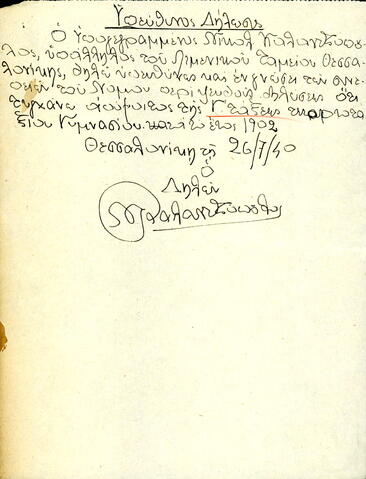 Ὑπεύθυνος Δήλωσις
Ὁ Ὑπογεγραμμένος Νικολ. Μπαλανζόπου-
λος, ὑπάλληλος τοῦ Λιμενικοῦ Ταμείου Θεσσα-
λονίκης, δηλῶ ὑπευθύνως καὶ ἐν γνώσει τῶν συνε-
πειῶν τοῦ Νόμου περὶ ψευδοῦς δηλώσεως ὅτι
τυγχάνω ἀπόφοιτος τῆς Γ. τάξεως
ξίου Γυμνασίου κατὰ τὸ ἔτος 1902
Θεσσαλονίκη τῇ 26/7/40
Ὁ
Δηλῶν